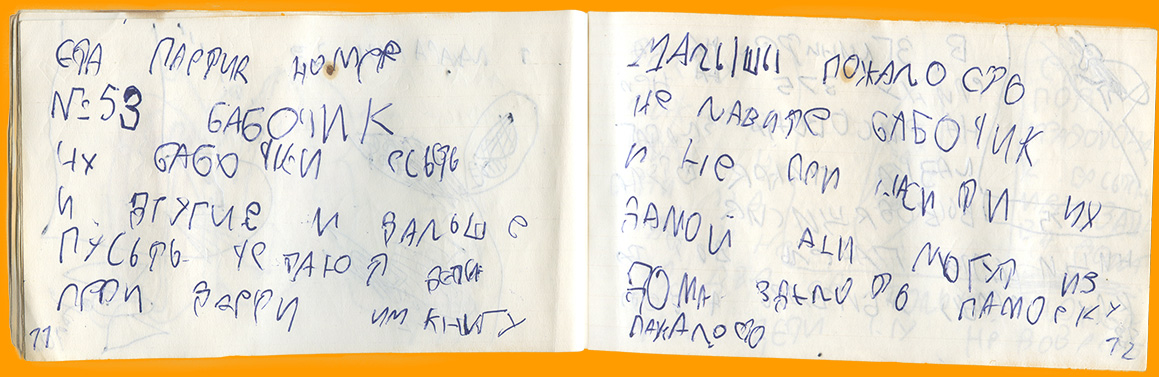 ЕТА ПАРТИЯ НОМЕР
№53 БАБОЧИК
ИХ БАБОЧКИ ЕСЬТЬ
И ДРУГИЕ И ДАЛЬШЕ
ПУСЬТЬ ЧЕТАЮТ ДЕТИ
ИМ КНИГУ
11
МАЛЫШЫ ПОЖАЛОСТО
НЕ ЛАВИТЕ БАБОЧИК
И НЕ ПРИ НАСИТИ ИХ
ДАМОЙ АНИ МОГУТ ИЗ
ДОМА ЗДЕЛОТЬ ПАМОЕКУ
12